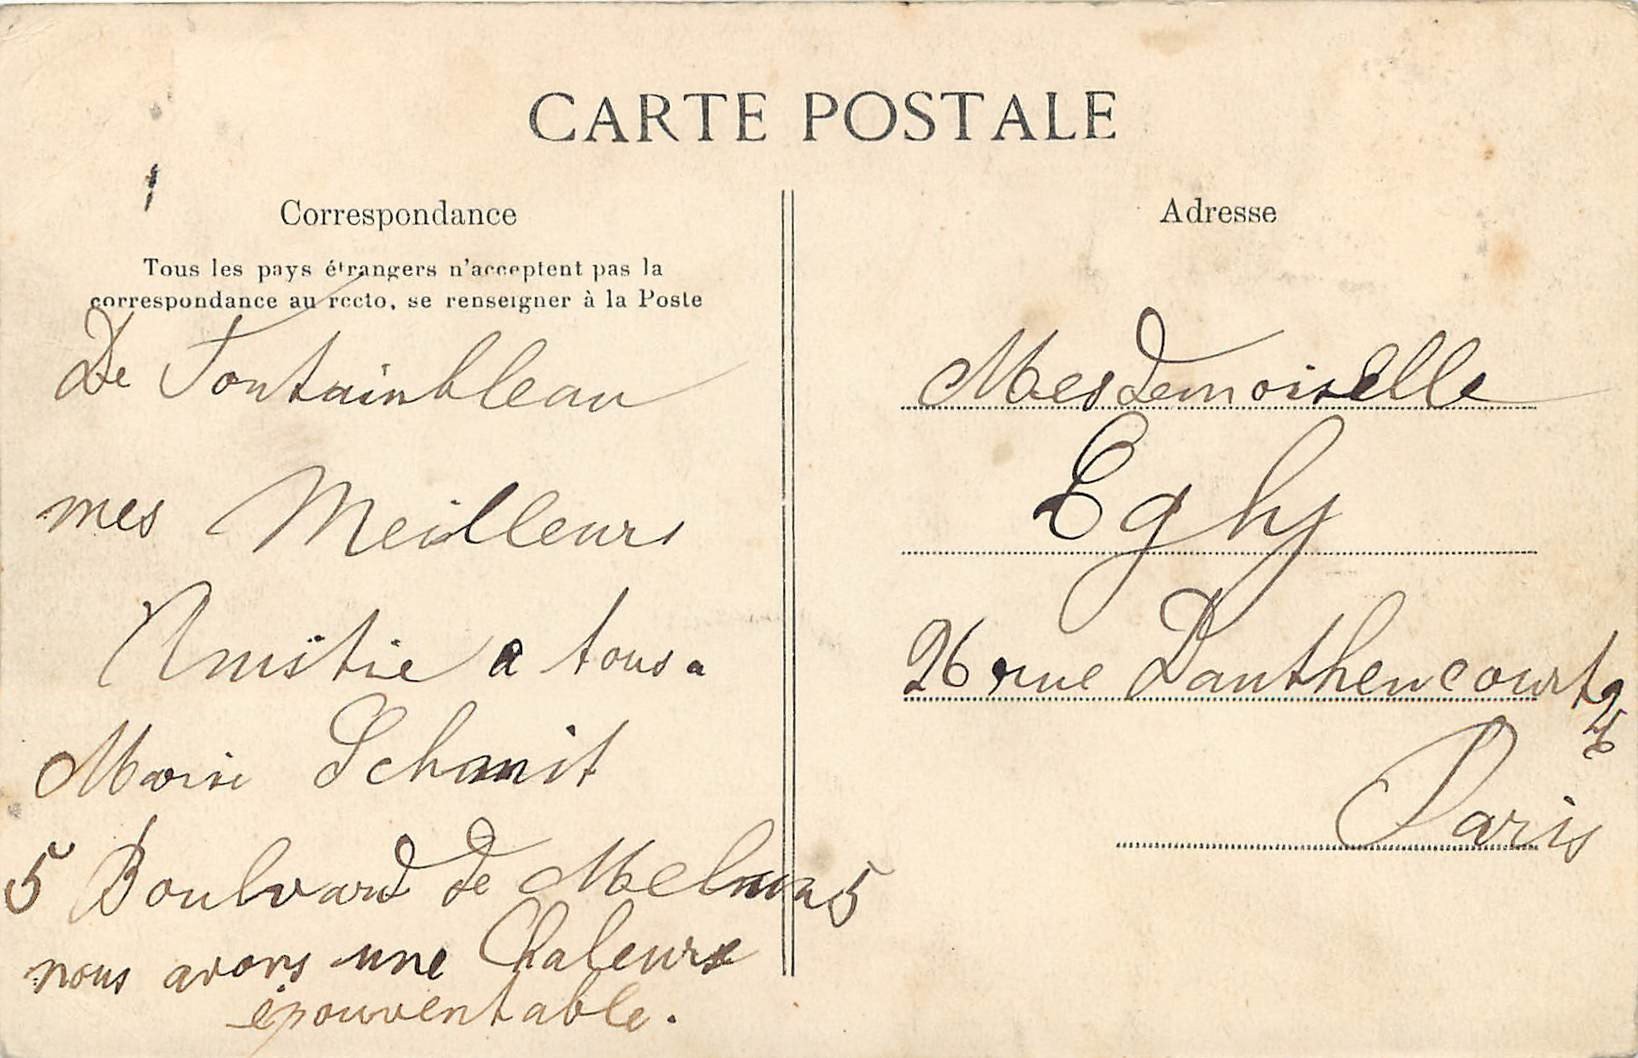 CARTE POSTALE
Correspondance
Tous les pays étrangers n'acceptent pas la
correspondance au recto, se renseigner à la Poste
De Fontainbleau
mes Meilleurs
Amitie a tous.
Marie Schmit
5 Boulvard de Melun 5
nous avons une Chaleure
épouventable.
Adresse
Mesdemoiselle
Eghy
26 rue Danthencourt
Paris